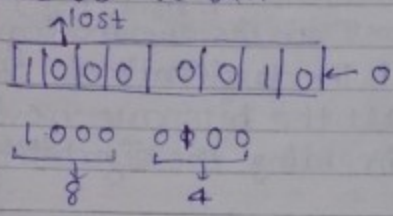 lost
1 0 0 0 0 0 1 0 ← 0
1 0 0 0 0 1 0 0
8 4